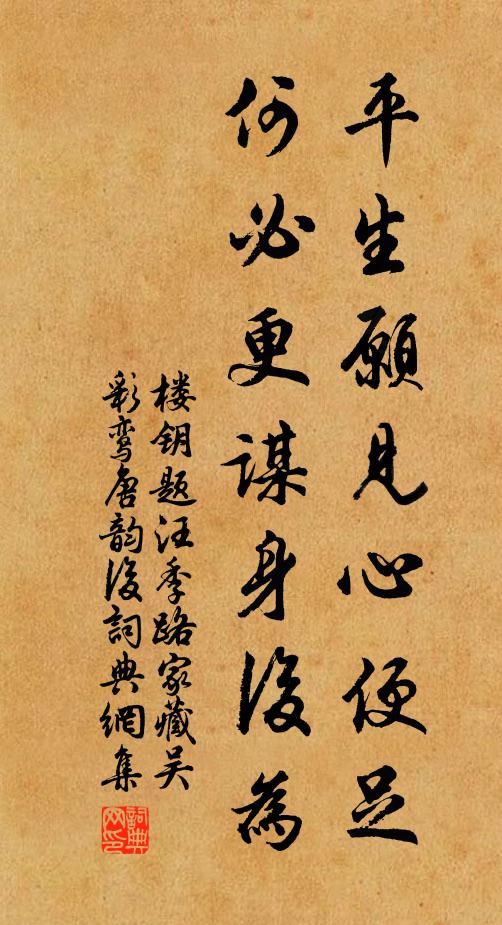 平生願見心便足
何必更謀身後為
楼钥题汪季路家藏吴
彩鸾唐韵後詞典網集
詞典網印